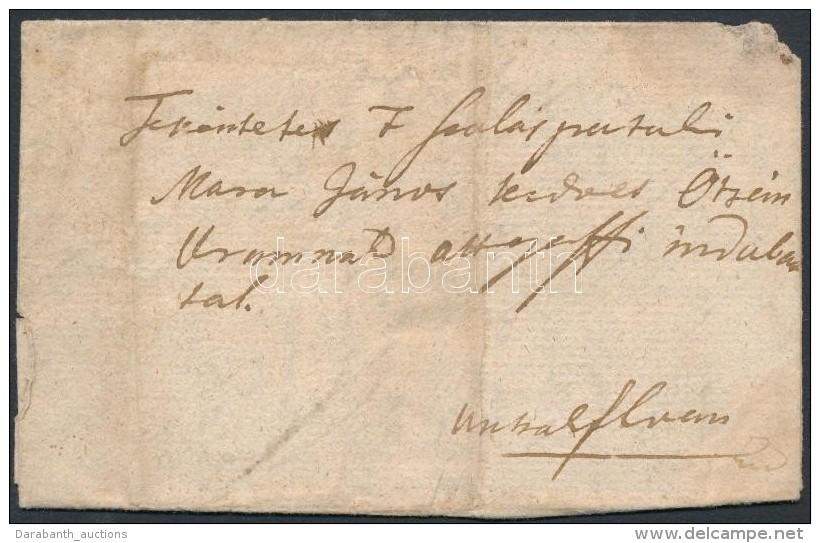 Tekéntetes F Szalaspataki
Mara János kedves Ötsém
Uramnak attyaffi indula
tal.
darabanth
Darabanth_auctions
delcampe.net